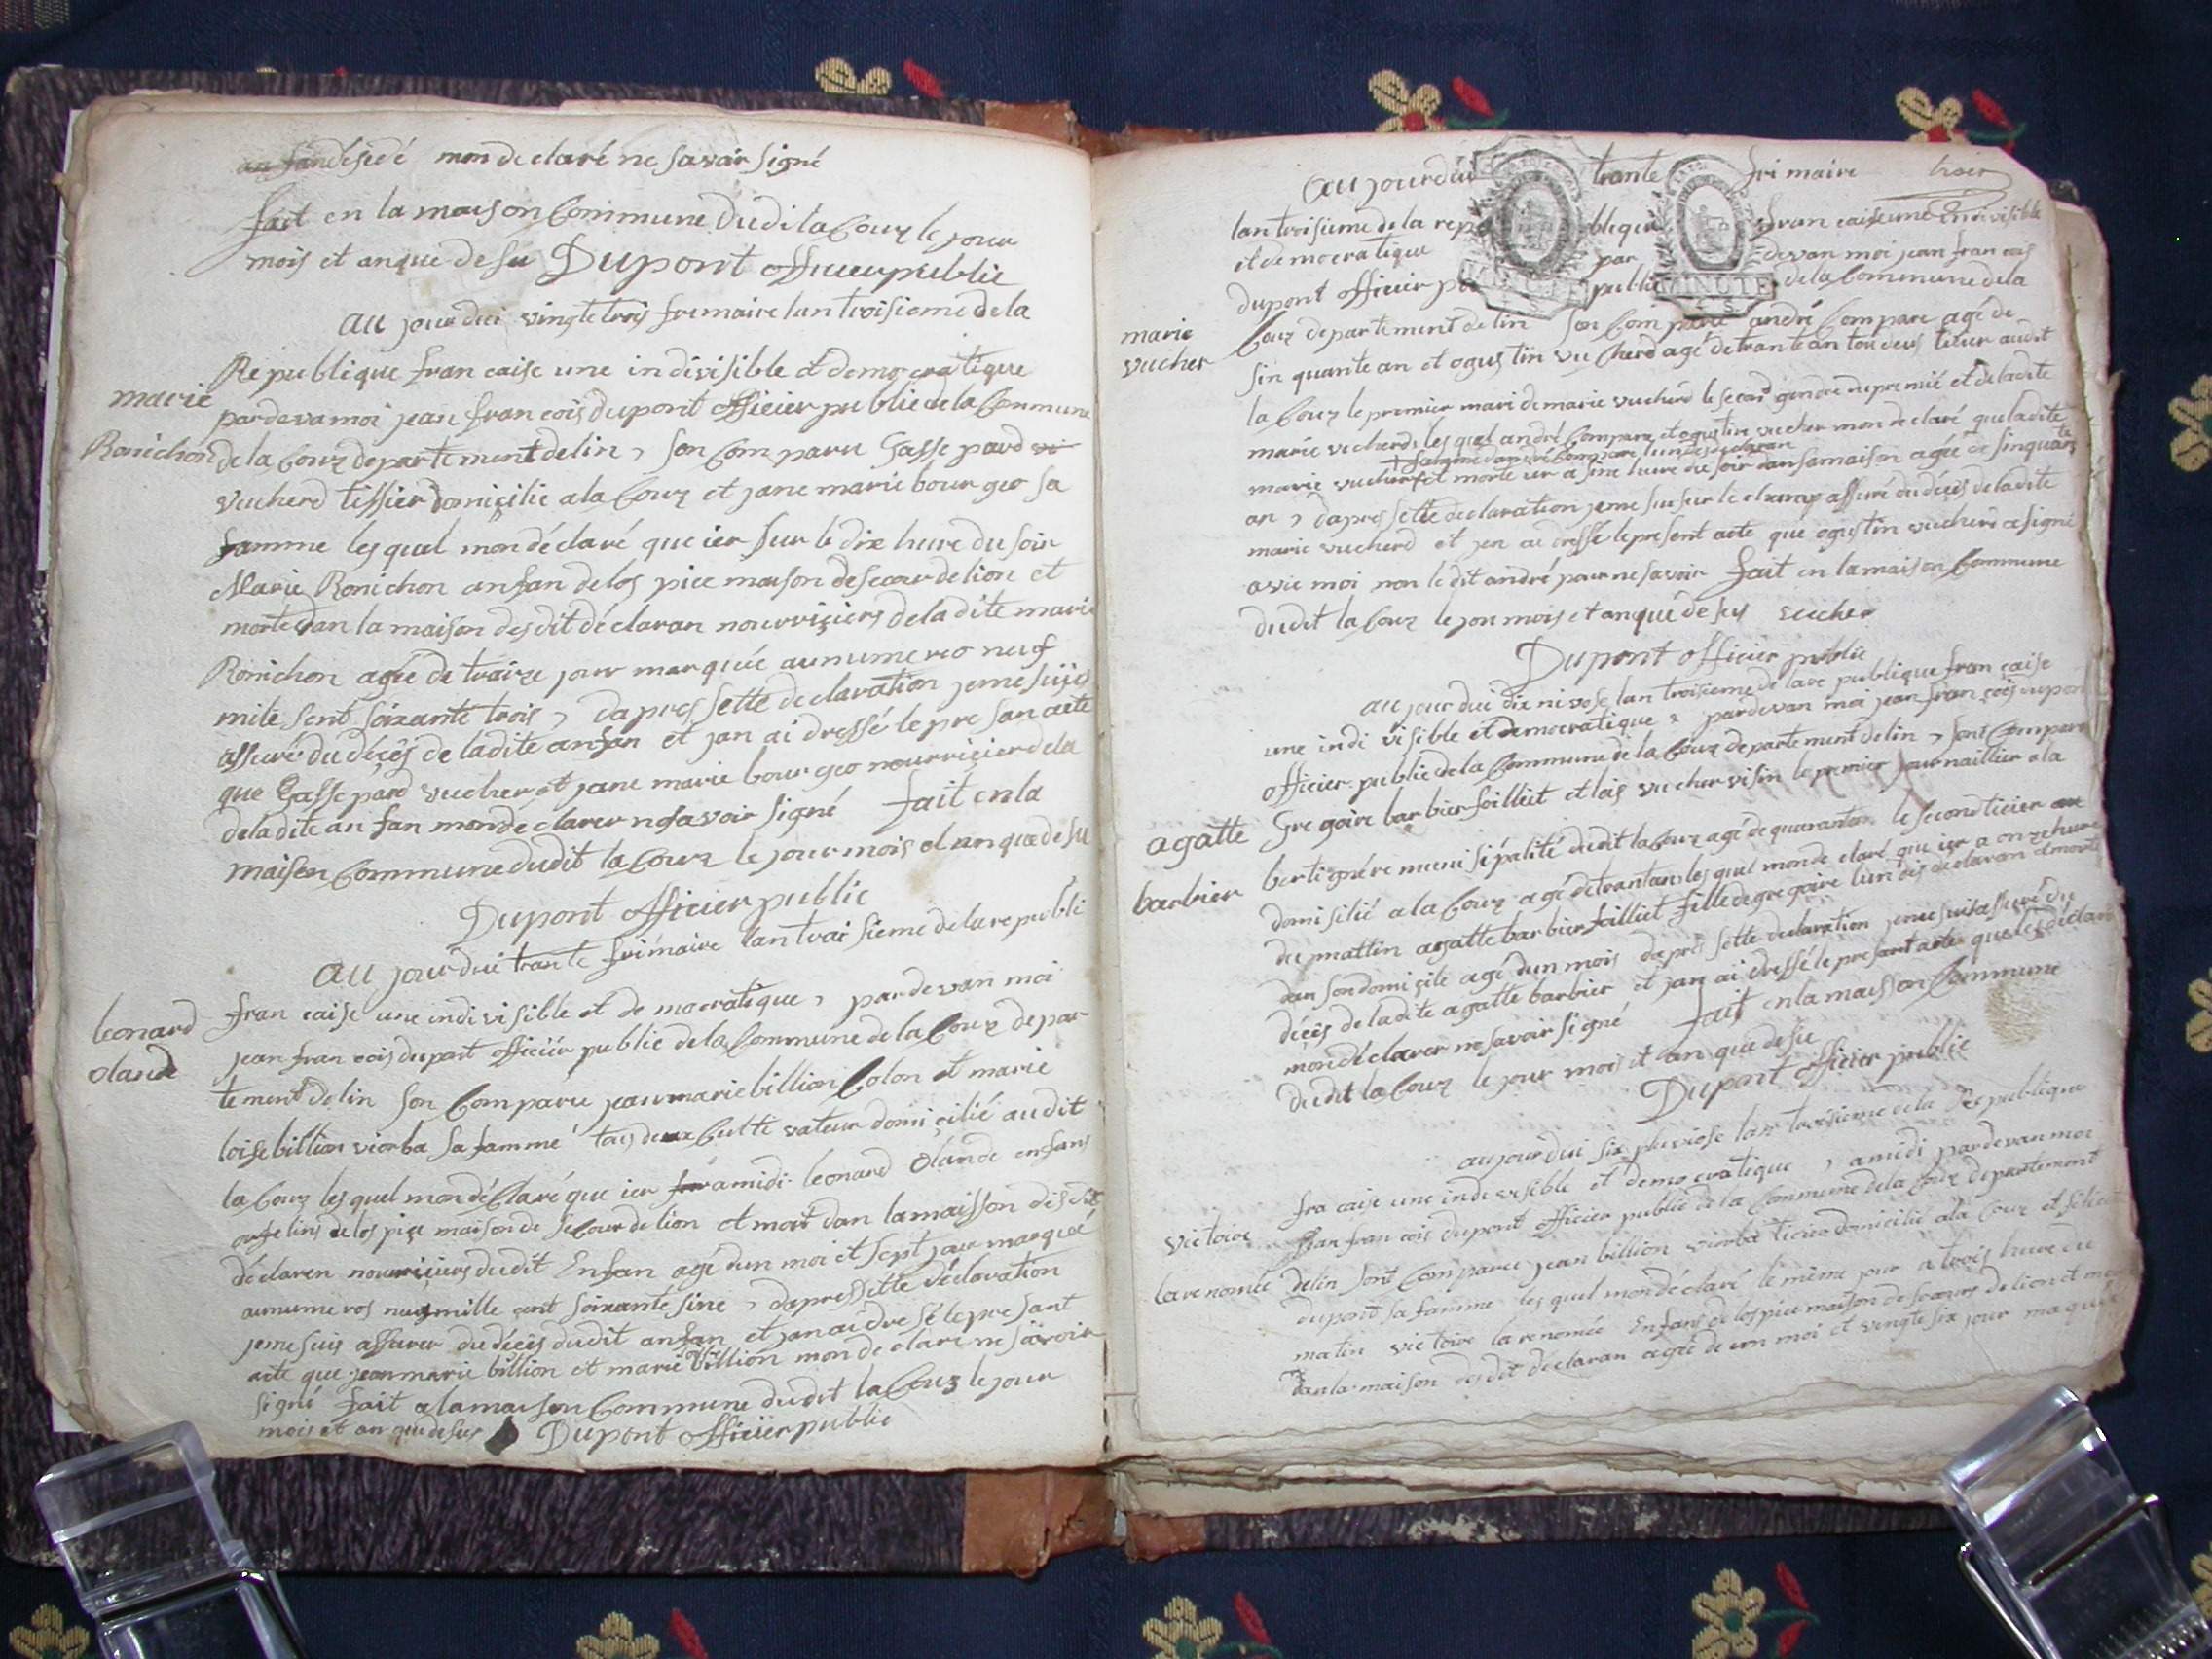 an fan désedé mon declaré ne savoir signé
fait en la maison Commune dudi la Coux le jour
mois et anque de su Dupont officier public
au jourdui vingte trois frimaire lan troisieme de la
Republique francaise une indivisible et democratique
marie
pardeva moi jean francois dupont officier public de la Commune
Ronichon
de la Coux departement de lin, son comparu Gasse pard
vucherd tissier domicilie a la Coux et jane marie bour geo sa
famme les quel mon déclaré que ier sur le dix hure du soir
Marie Ronichon anfan de los pice maison de secour de lion et
morte dan la maison des dit déclaran nourriciers de la dite marie
Ronichon agée de traize jour marquée au numereo neuf
mile sent soixante trois, dapres sette declaration jeme suis
assuré du déces de la dite anfan et jan ai dressé le pre san acte
que Gasse pard vucher et jane marie bour geo nourricier de la
de la dite an fan mon déclarer ne savoir signé fait en la
maison Commune dudit la Coux le jour mois et an que de su
Dupont officier public
au jourdui trante frimaire lan troisieme de la republi
leonard
olande
francaise une indivisible et de mocratique, pardevan moi
jean francois dupont officiér public de la Commune de la Coux depar
tement de lin son Comparu jean marie billion Colon et marie
loise billion viorba sa famme tous deux Culti vateur domicilié audit
la Coux les quel mon déClaré que ier a midi leonard olande enfans
orfelins de los pice maison de seCour de lion et mort dan la maisson des dit
déclaren nourriciers dudit Enfan agé dun moi et sept jour marqué
au numeros neuf mille cent soixante sinc, dapres sette déclaration
jeme suis assurer du déces dudit anfan et jan ai dre sé le pre sant
acte que jean marie billion et marie billion mon de claré ne savoir
signé fait a la maison Commune dudit la Coux le jour
mois et an que desus Dupont officiier public
au jourdui trante frimaire
lan troisieme de la republique francaise une Indivisible
et democratique par devan moi jean francois
dupont officier public de la Commune de la
marie
vucher
Coux departement de lin son Comparu andré Compare agé de
sin quante an et ogustin vucherd agé de trante an tou deus
la Coux le premier mari de marie vucherd le second gendre du premié et de la dite
marie vucherd, les quel andré Compare et ogustin vucher mon déclaré que la dite
marie vucherd et morte ier a sinc hure du soir dan sa maison agée de sinquante
an, dapres sette declaration jeme sui sur le champ assuré du déces de la dite
marie vucherd et jen ai dressé le present acte que ogustin vucherd a signé
avec moi non le dit andré pour ne savoir fait en la maison Commune
dudit la Coux le jon mois et an que de sus vucher
Dupont officiér public
au jour dui dix nivose lan troisieme de la re publique francaise
une indivisible et democratique, pardevan moi jean francois dupon
officier public de la Commune de la Coux departement de lin, sont Comparu
agatte
barbier
Gregoire barbier foilliet et lois vucher visin le premier journaillier a la
bertignére munisipalité dudit la Coux agé de quarantan le second ticier
domisilié a la Coux agé de trantan les quel mon de claré que ier a onze hure
du mattin agatte barbier foilliet fille de gregoire lun des declaran et morte
dan son domicile agé dun mois dapres sette declaration jeme suis assuré du
déces de la dite agatte barbier et jan ai dressé le present acte que les déclaran
mon déclarer ne savoir signé fait en la maisson Commune
dudit la Coux le jour mois et an que de su
Dupont officiér public
aujourdui six pluviose lan troisieme de la Republique
fracaise une indivisible et democratique, a midi pardevan moi
jean francois dupont officier public de la Commune de la Coux departement
victoire
la renomée
de lin sont Comparu jean billion viorba ticier domicilié a la Coux et
dupont sa famme les quel mon déclaré le même jour a trois hure du
matin victoire la renomée Enfans de los pice maison de secour de lion et
dan la maison des dit déclaran agée de un moi et vingte six jour maquée